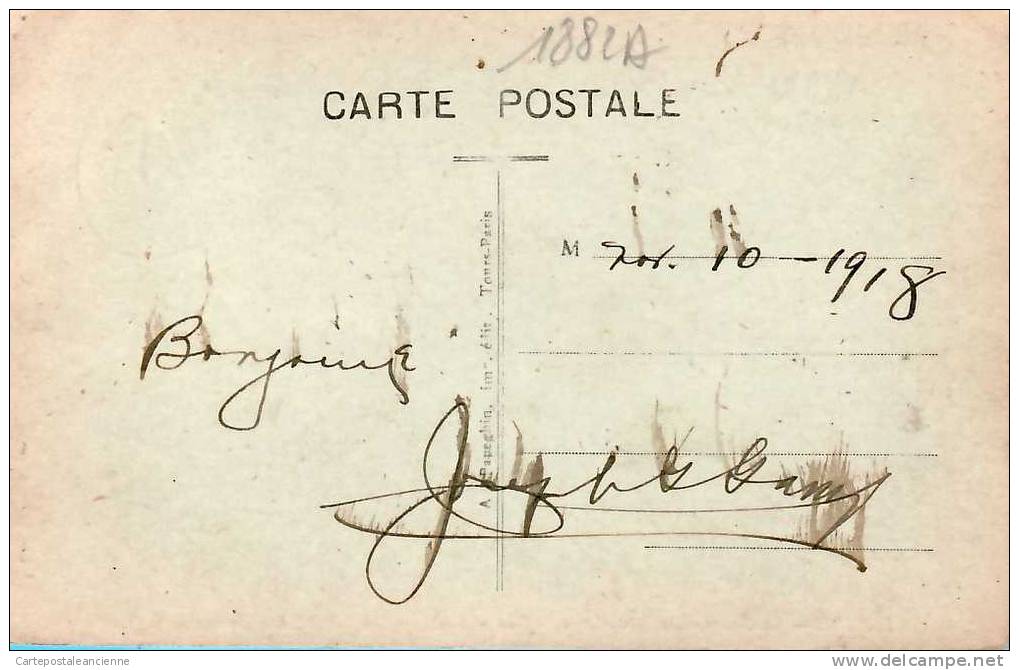 1882A
CARTE POSTALE
A. Papeghin, imp. édit. Tours-Paris
M Nov. 10 - 1918
Bonjour
Joseph G
Cartepostaleancienne
www.delcampe.net